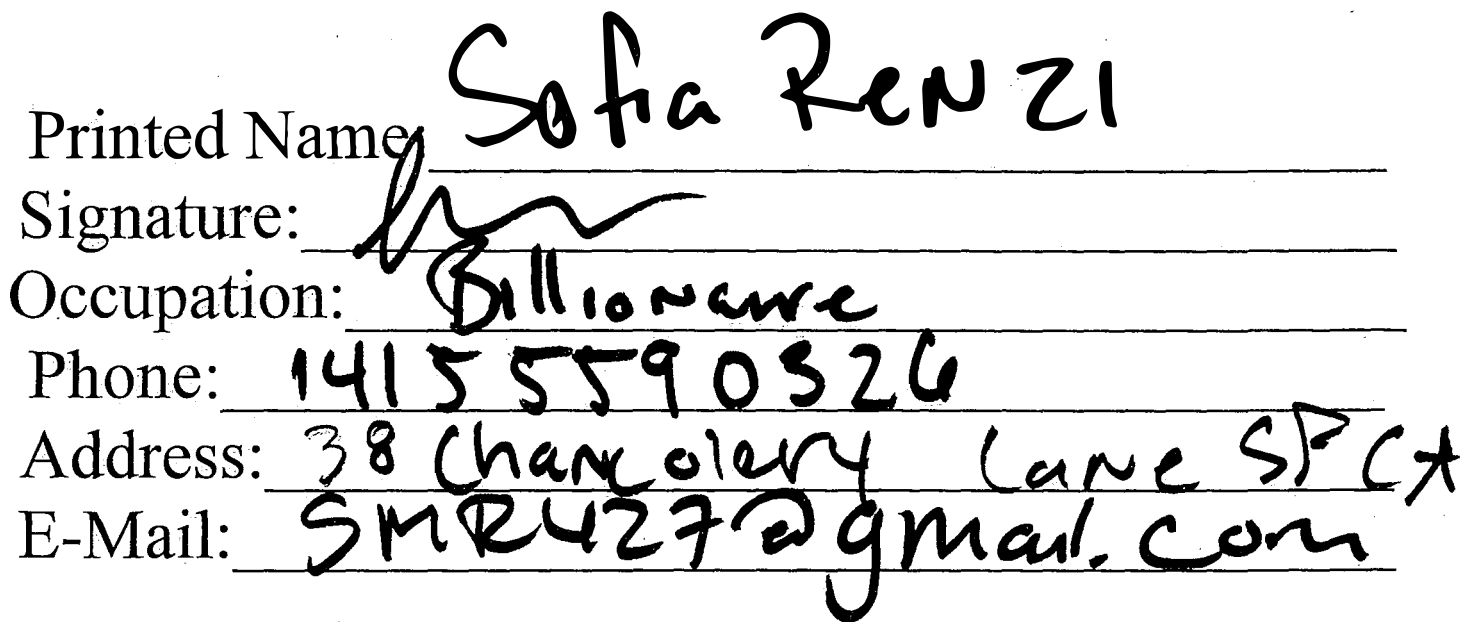 Printed Name: Sofia RENZI
Signature:
Occupation: Billionaire
Phone: 14155590326
Address: 38 Lane SF CA
E-Mail: SMR427@gmail.com